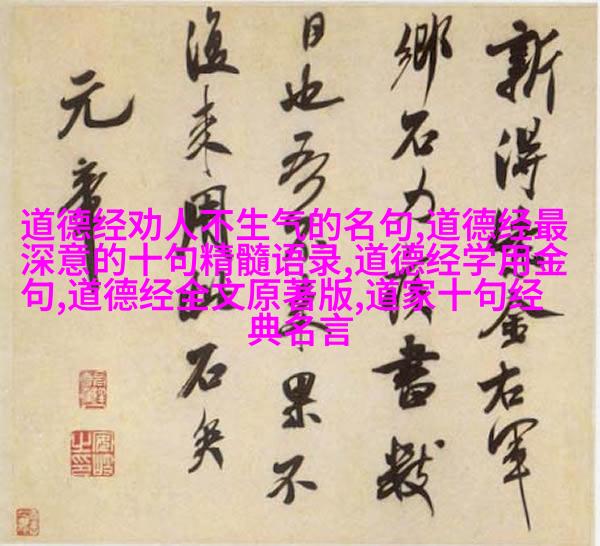 新得紫金右軍
鄉石力疾書數
日也吾 果不
復来用此石矣
元章
道德经劝人不生气的名句,道德经最
深意的十句精髓语录,道德经学用金
句,道德经全文原著版,道家十句经
典名言